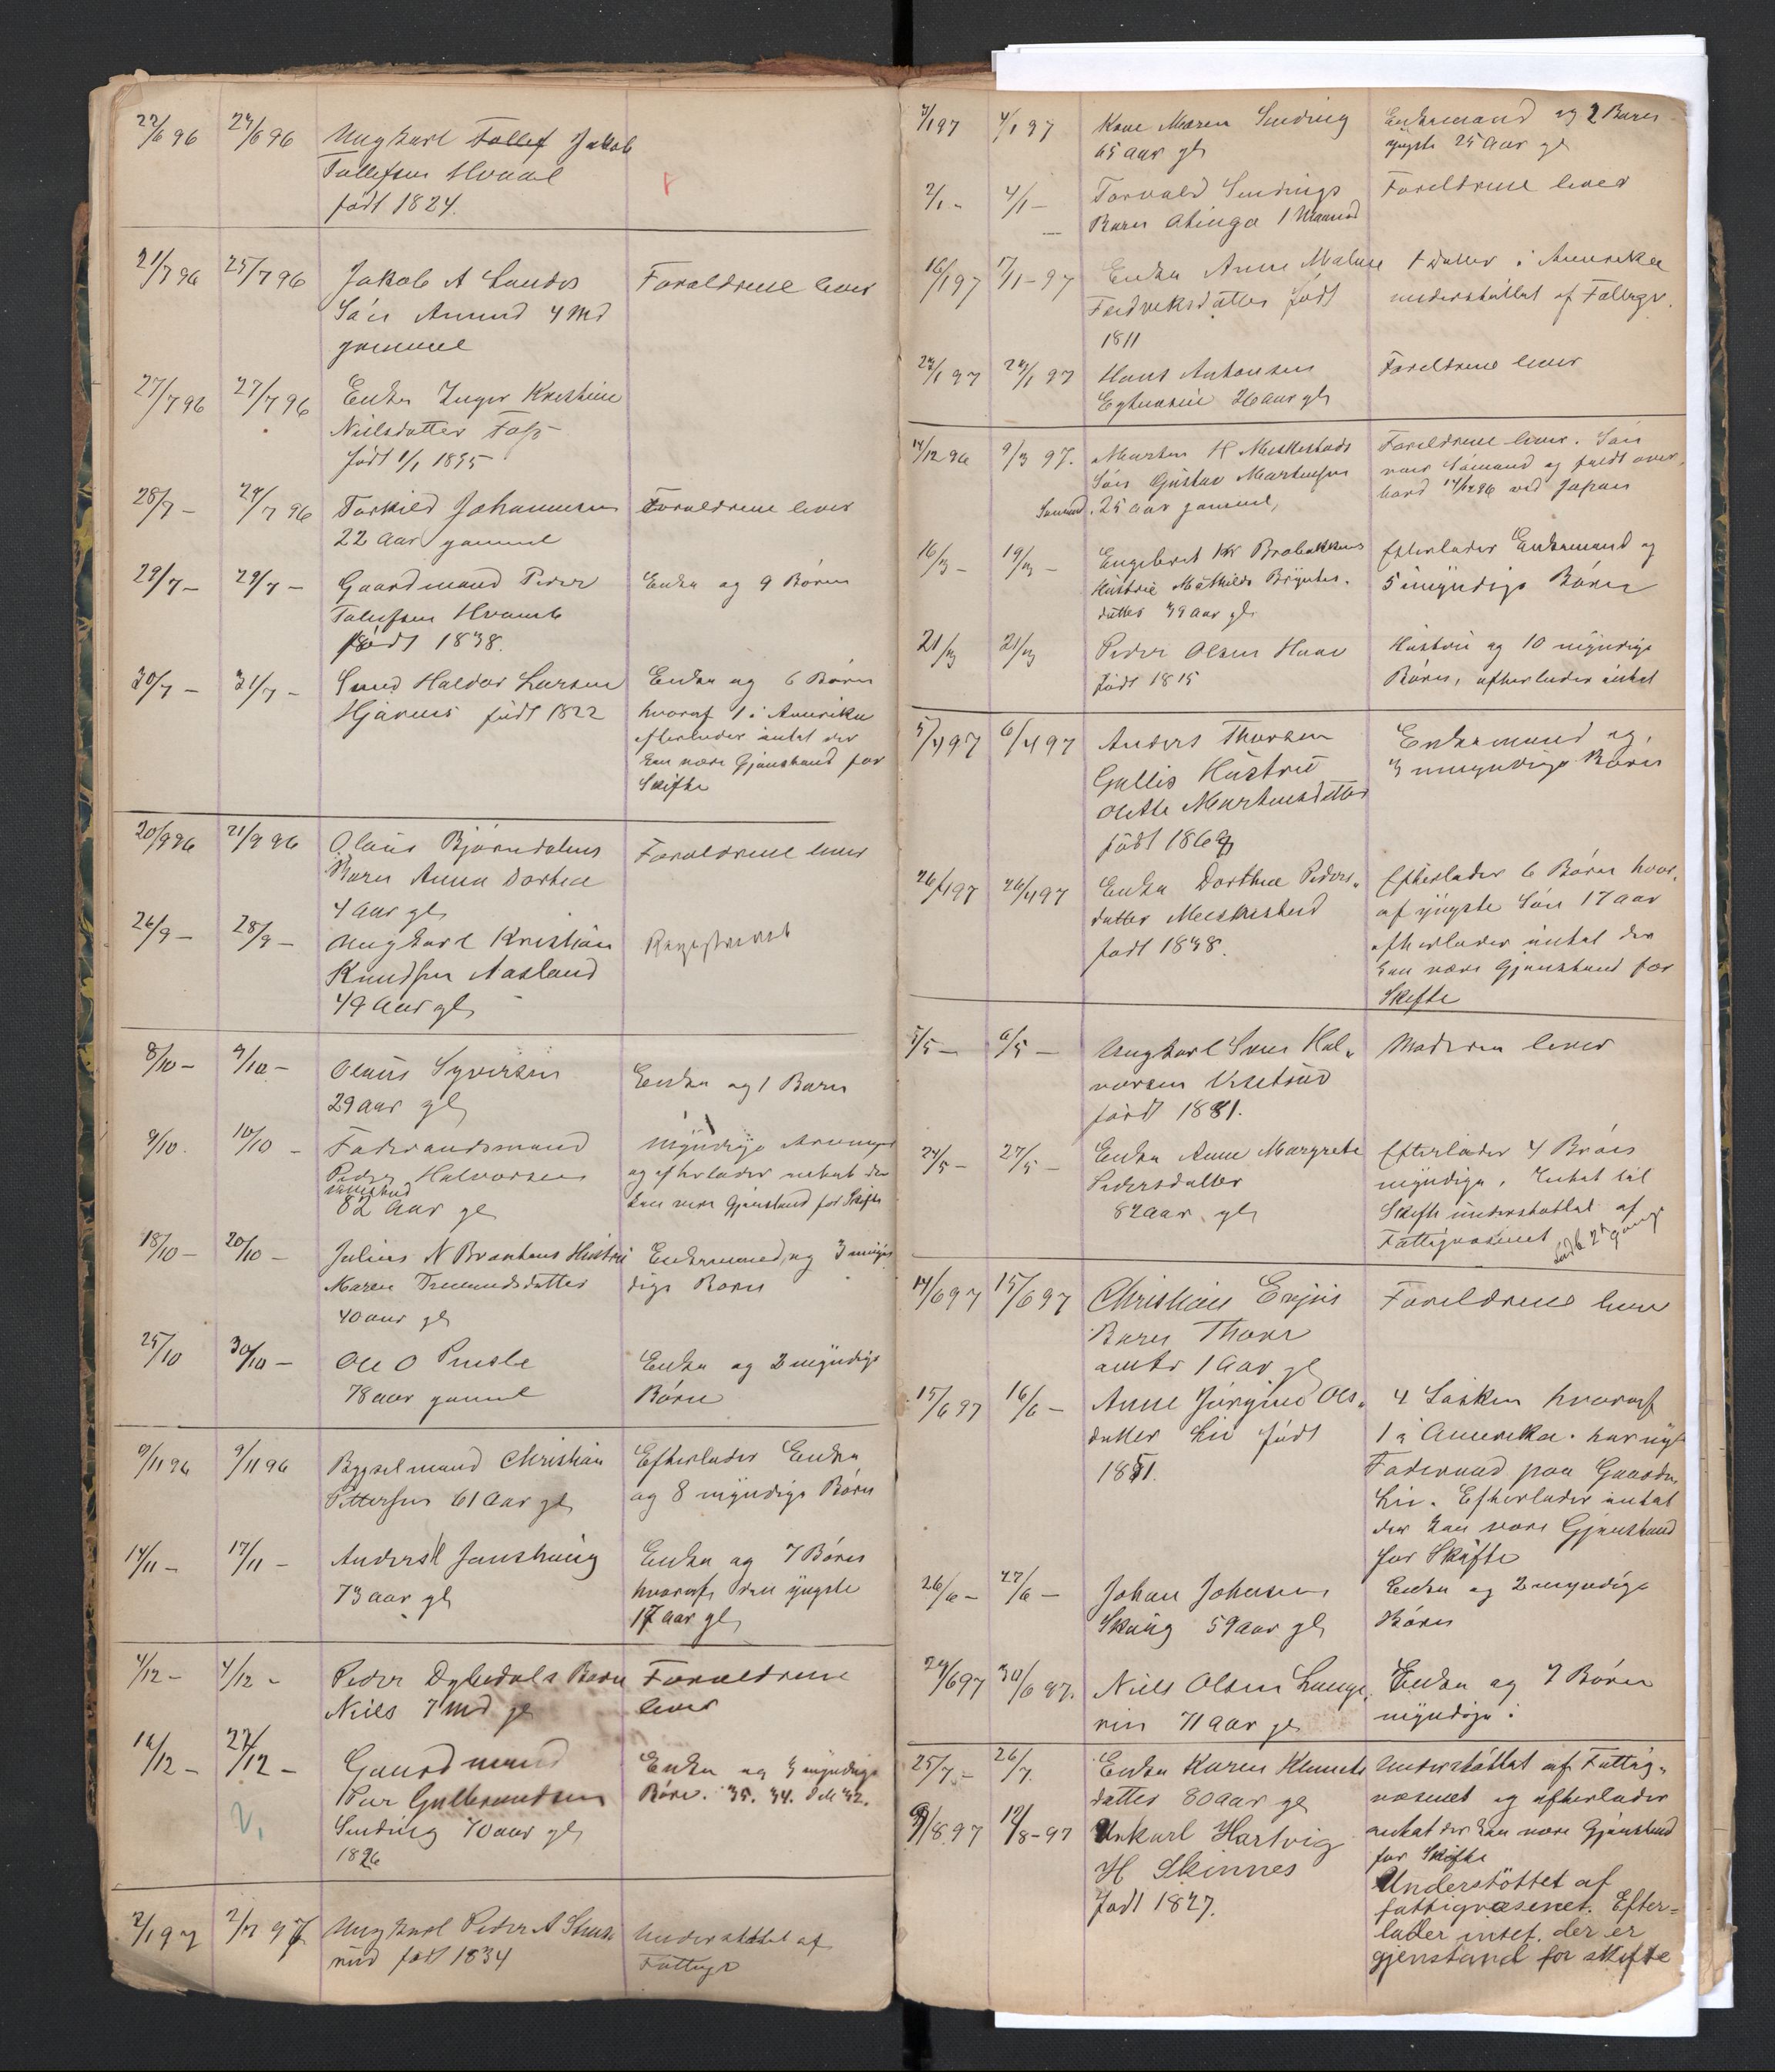 22/6 96 24/6 96 Ungkarl Tollef Jakob
Tollefsen Hvaal
født 1824.
21/7 96 25/7 96 Jakob A Sandes Foraldrene lever
Søn Amund 4 Md
gammel
27/7 96 27/7 96 Enke Inger Kristine
Nielsdatter Foss
født 1/1 1835
28/7 – 29/7 96 Torkild Johannesen Foraldrene lever
22 Aar gammel
29/7 – 29/7 – Gaardmand Peder Enke og 9 Børn
Tolufsen Hvamb
født 1838.
30/7 – 31/7 – Smed Haldor Larsen Enke og 6 Børn
Hjørnes født 1822 hvoraf 1 i Amerika
efterlader intet der
kan være Gjenstand for
Skifte
20/9 96 21/9 96 Olaus Bjørndalens Foraldrene lever
Barn Anna Dorthea
4 Aar gl
26/9 – 28/9 – Ungkarl Kristian Registreret
Knudsen Aasland
49 Aar gl
8/10 – 9/10 – Olaus Syversen Enke og 1 Barn
29 aar gl
9/10. 10/10 – Føderaadsmand myndige Arvinger
Peder Halvorsen og efterlader intet der
82 Aar gl kan være Gjenstand for Skifte
18/10 – 20/10 – Julius N Braatens Hustru Enkemand og 3 umyn
Maren Trundsdatter dige Børn
40 aar gl
25/10 30/10 – Ole O Pusle Enke og 2 myndige
78 aar gammel Børn
9/11 96 9/11 96 Bygselmand Christian Efterlader Enke
Pettersen 61 Aar gl og 8 myndige Børn
14/11 – 17/11 – Anders Jonshaug Enke og 7 Børn
73 aar gl hvoraf den yngste
17 aar gl
4/12 – 4/12 – Peder Dybedals Barn Foraldrene
Niels 7 md gl lever
16/12 – 22/12 – Gaardmand Enke og 3 myndige
Per Gulbrandsen Børn. 35. 34. 32.
Sending 70 aar gl
1826
2.
2/1 97 2/1 97 Ungkarl Peder A Stens Understøttet af
rud født 1834 Fattigv
3/1 97 4/1 97 Kone Maren Sending Enkemand og 2 Barn
65 aar gl yngste 25 Aar gl
2/1 – 4/1 – Torvald Sendings Foreldrene lever
Barn Alinga 1 Maaned
16/1 97 17/1 – 97 Enke Anne Malene 1 Datter i Amerika
Fredreksdatter født understøttet af Fattigv.
1811
22/1 97 24/1 97 Hans Antonsen Foreldrene lever
26 aar gl
14/12 96 9/3 97. Morten H Meskestads Foreldrene lever. Søn
Søn Gustav Martinsen var Sømand og faldt over
Sømand. 25 aar gammel, bord 14/12 96 ved Japan
16/3 – 19/3 – Engebret Kr Brobakkens Efterlader Enkemand og
Hustru Mathilde Bryntes. 5 umyndige Børn
datter 39 aar gl
21/3 21/3 Peder Olsen Haae Hustru og 10 myndige
født 1815 Børn, efterlader intet
5/4 97 6/4 97 Anders Thorsen Enkemand og
Gullis Hustru 3 umyndige Børn
Olette Martinsdatter
født 1868
26/4 97 26/4 97 Enke Dorthea Peders„ Efterlader 6 Børn hvor„
datter Meskestad af yngste Søn 17 aar
født 1838. efterlader intet der
kan være Gjenstand for
Skifte
5/5 – 6/5 – Ungkarl Sven Hal„ Moderen lever
vorsen Visetrud
født 1881.
24/5 – 27/5 – Enke Anne Margrete Efterlader 4 Børn
Pedersdatter myndige. Intet til
82 aar gl Skifte understøttet af
Fattigvæsenet
2n gang
14/6 97 15/6 97 Christian Enjis Foreldrene lever
Barn Thora
1 Aar gl
15/6 97 16/6 – Anne Jørgine Ols„ 4 Søsken hvoraf
datter Lie født 1 i Amerika. har nyt
1851. Føderaad paa Gaarden
Lie. Efterlader intet
der kan være Gjenstand
for Skifte
26/6 – 27/6 – Johan Johnsen Enke og 2 myndige
Skaug 59 aar gl Børn
29/6 97 30/6 97. Niels Olsen Lunge Enke og 7 Børn
rin 71 aar gl myndige.
25/7 – 26/7. Enke Karen Klemets Understøttet af Fattig„
datter 80 aar gl væsenet og efterlader
intet der kan være Gjenstand
for Skifte
9/8 97 12/8 – 97 Unkarl Hartvig Understöttet af
H Skinnes fattigvæsenet. Efter=
født 1827. lader intet. der er
gjenstand for skifte